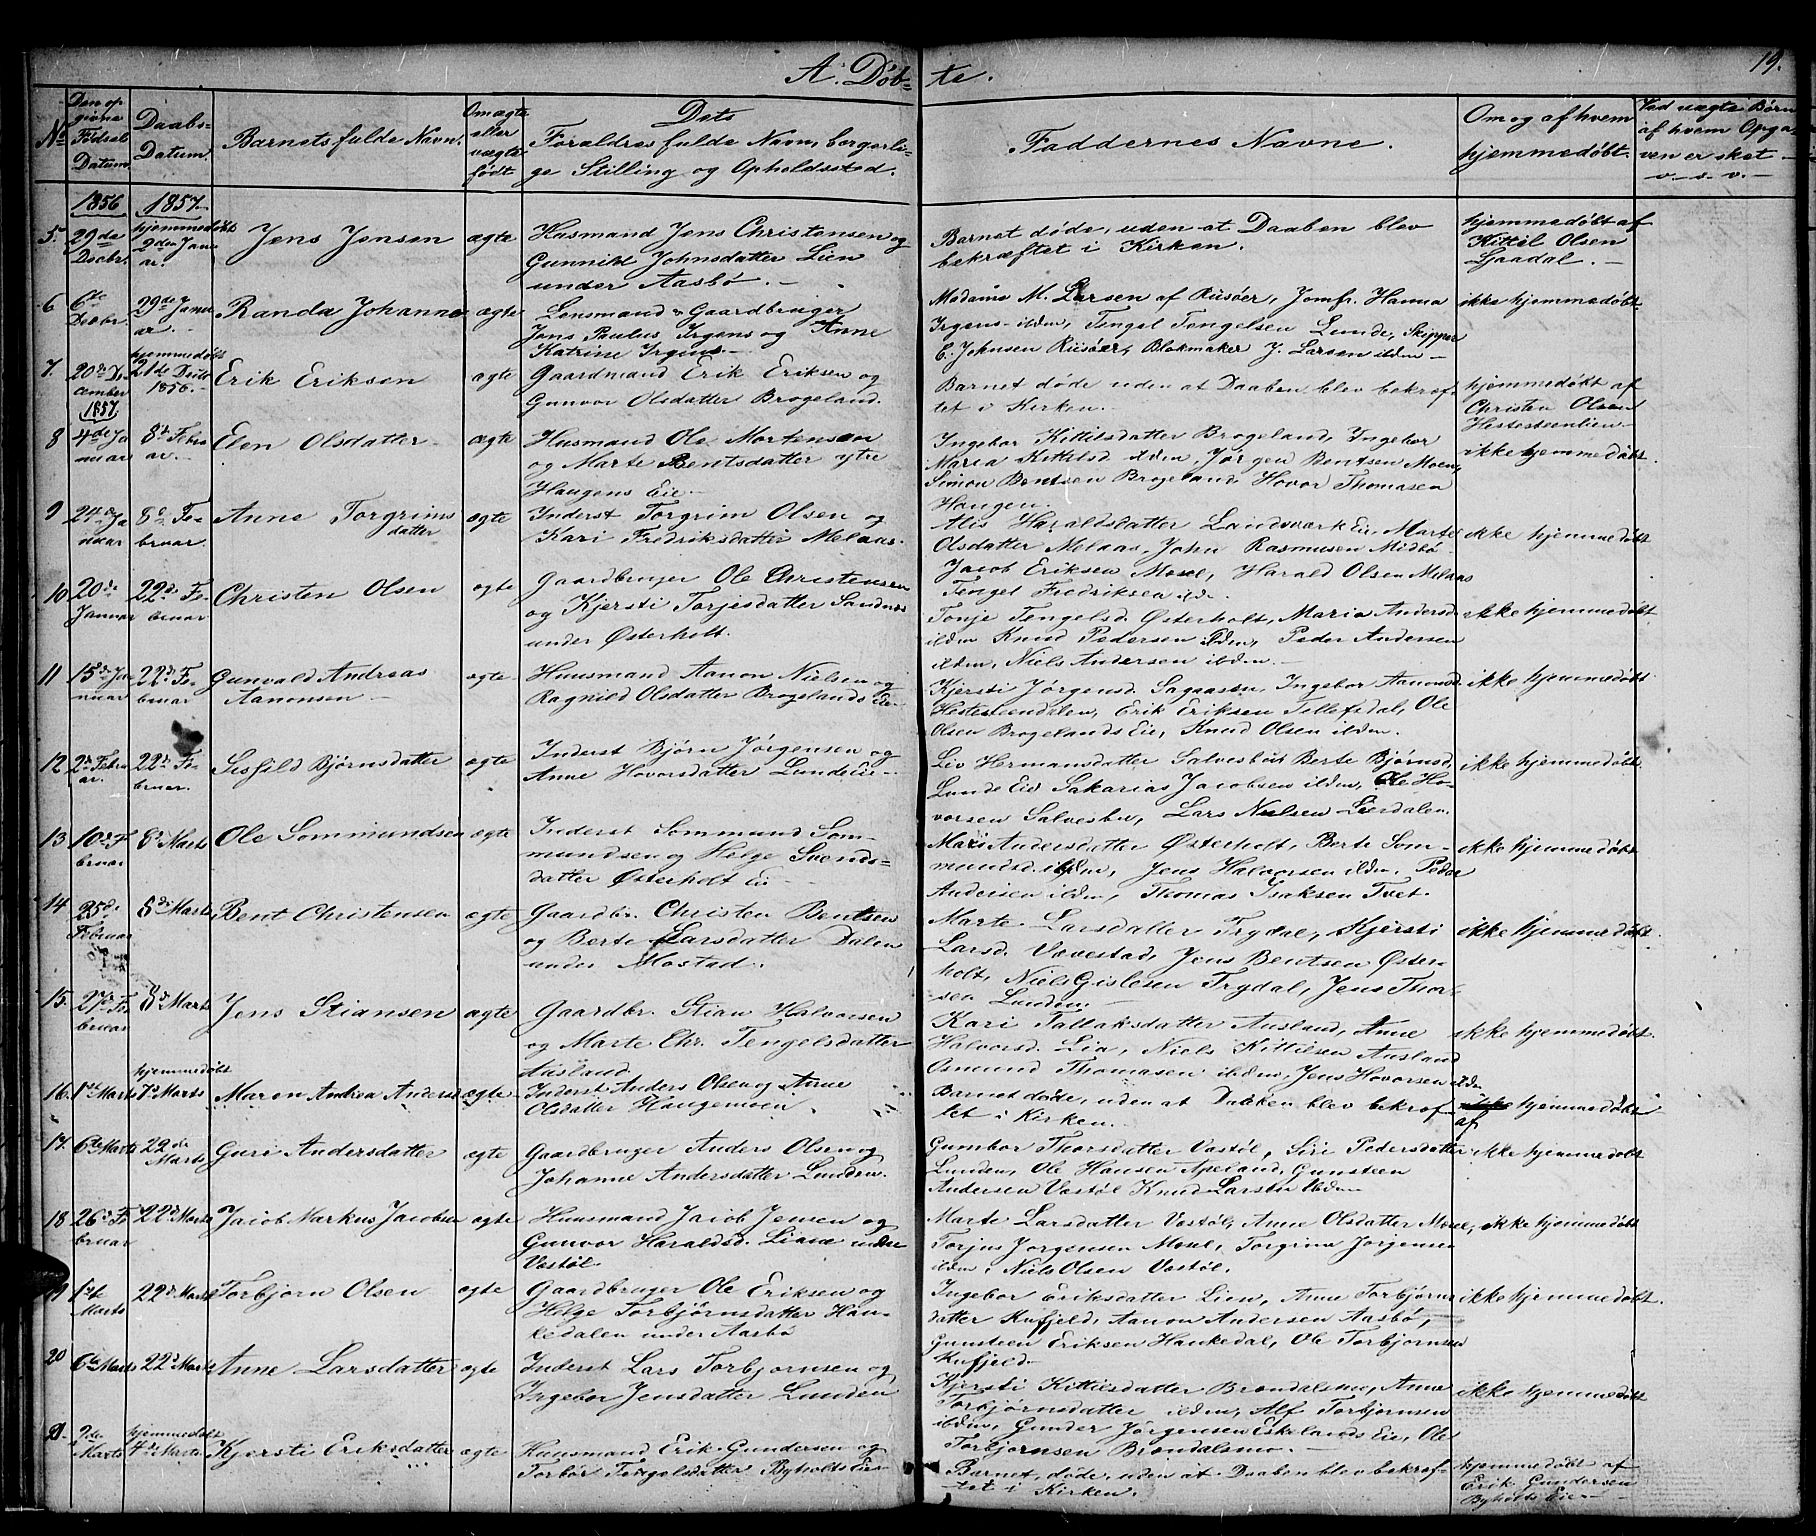 A. Døbte.
19.
No
Den opgivne Fødsels Datum
Daabs-Datum.
Barnets fulde Navn.
Om ægte eller uægte født
Dets Forældres fulde Navn, borgerlige Stilling og Opholdssted.
Faddernes Navne.
Om og af hvem hjemmedøbt.
Ved uægte Børn af hvem Opgaven er sket
1856
1857
5.
29de Decbr.
hjemmedøbt 2den Januar.
Jens Jensen
ægte
Husmand Jens Christensen og
Gunnild Johnsdatter Lien
under Aasbø.
Barnet døde, uden at Daaben blev
bekræftet i Kirken.
hjemmedøbt af
Kittil Olsen
Ljaadal.
6
6te Decbr
29de Januar.
Randa Johanne
ægte
Lensmand & Gaardbruger
Jens Paulus Irgens og Anne
Katrine Irgens
Madame M. Larsen af Riisøer, Jomfr. Hanna
Irgens ilden, Tengel Tengelsen Lunde, Skipper
C. Johnsen Riisøer, Blokmaker J. Larsen ilden
ikke hjemmedøbt
7.
20de December
hjemmedøbt 21de Ditto 1856.
Erik Eriksen
ægte
Gaardmand Erik Eriksen og
Gunvor Olsdatter Brogeland.
Barnet døde uden at Daaben blev bekræf-
tet i Kirken.
hjemmedøbt af
Christen Olsen
Hesteskeenlien
1857
8
4de Januar
8de Februar.
Elen Olsdatter
ægte
Husmand Ole Mortensen
og Marte Bentsdatter ytre
Haugens Eie
Ingebor Kittilsdatter Brogeland, Ingebor
Maria Kittilsd ilden, Jørgen Bentsen Moen,
Simon Bentsen Brogeland, Hovor Thomasen
Haugen
ikke hjemmedøbt.
9
24de Januar
8de Februar.
Anne Torgrims
datter
ægte
Inderst Torgrim Olsen og
Kari Fredriksdatter Melaas.
Alis Haraldsdatter Landsværk Eie, Marte
Olsdatter Melaas, John Rasmusen Midbø
Jacob Eriksen Mosel, Harald Olsen Melaas
Tengel Fredriksen ilde.
ikke hjemmedøbt
10
20de Januar
22de Februar.
Christen Olsen
ægte
Gaardbruger Ole Christensen
og Kjersti Torjesdatter Sandnæs
under Østerholt.
Tonje Tengelsd. Østerholt, Maria Andersd.
ilden Knud Pedersen ilden, Peder Andersen
ilden, Niels Andersen ilden.
ikke hjemmedøbt
11
15de Januar
22de Februar
Gunvald Andreas
Aanonsen
ægte
Huusmand Aanon Nielsen og
Ragnild Olsdatter Brogelands Eie
Kjersti Jørgensd. Sagaasen, Ingebor Aanonsd
Hesteskeendalen, Erik Eriksen Tellefsdal, Ole
Olsen Brogelands Eie, Knud Olsen ilden.
ikke hjemmedøbt
12
2de Februar.
22de Februar.
Sisfild Bjørnsdatter
ægte
Inderst Bjørn Jørgensen og
Anne Hovorsdatter Lunde Eie
Liv Hermansdatter Salvesbue Berte Bjørnsd.
Lunde Eie Sakarias Jacobsen ilden, Ole Ho-
vorsen Salvesbu, Lars Nielsen Lierdalen.
ikke hjemmedøbt.
13
10de Februar
8de Marts
Ole Sommundsen
ægte
Inderst Sommund Som-
mundsen og Helge Svends-
datter Østerholt Eie
Mari Andersdatter Østerholt, Berte Som-
mundsd. ilden, Jens Halvorsen ilden, Peder
Andersen ilden, Thomas Isaksen Tvet.
ikke hjemmedøbt
14
25de Februar
8de Marts
Bent Christensen
ægte
Gaardbr. Christen Bentsen
og Berte Larsdatter Dalen
under Mostad.
Marte Larsdatter Trydal, Kjersti
Larsd. Vævestad, Jens Bentsen Øster-
holt, Niels Gislesen Trydal, Jens Thor-
sen Lunden.
ikke hjemmedøbt.
15.
27de Februar
8de Marts
Jens Stiansen
ægte
Gaardbr. Stian Halvorsen
og Marte Chr. Tengelsdatter
Ausland
Kari Tallaksdatter Ausland, Anne
Halvorsd. Lia, Niels Kittilsen Ausland
Osmund Thomasen ilden, Jens Hovorsen ilden
ikke hjemmedøbt.
16.
1ste Marts
hjemmedøbt 7de Marts
Maren Andrea Andersd
ægte
Inderst Anders Olsen og Anne
Olsdatter Haugemoen.
Barnet døde, uden at Daaben blev bekræf-
tet i Kirken.
hjemmedøbt
af
17.
6te Marts
22de Marts
Guri Andersdatter
ægte
Gaardbruger Anders Olsen og
Johanne Andersdatter Lunden.
Gumbor Thorsdatter Vastøl, Siri Pedersdatter
Lunden, Ole Hansen Apeland, Gunsteen
Andersen Vastøl Knud Larsen ilden
ikke hjemmedøbt
18
26de Februar
22de Marts
Jacob Markus Jacobsen
ægte
Huusmand Jacob Jensen og
Gunvor Haraldsd. Liane under
Vastøl.
Marte Larsdatter Vastøl, Anne Olsdatter Mosel,
Torjus Jørgensen Mosel, Torgrim Jørgensen
ilden, Niels Olsen Vastøl.
ikke hjemmedøbt
19
1ste Marts
22de Marts
Torbjørn Olsen
ægte
Gaardbruger Ole Eriksen og
Helge Torbjørnsdatter Hau-
kedalen under Aasbø
Ingebor Eriksdatter Lien, Anne Torbjørns-
datter Kufjeld, Aanon Andersen Aasbø,
Gunsteen Eriksen Haukedal, Ole Torbjørnsen
Kufjeld.
ikke hjemmedøbt.
20
6te Marts
22de Marts
Anne Larsdatter
ægte
Inderst Lars Torbjørnsen og
Ingebor Jensdatter Lunden
Kjersti Kittilsdatter Brøndalsmo, Anne
Torbjørnsdatter ilden, Alf Torbjørnsen
ilden, Gunder Jørgensen Eskelands Eie, Ole
Torbjørnsen Brøndalsmo.
ikke hjemmedøbt
21.
2de Marts
hjemmedøbt 4de Marts
Kjersti Eriksdatter
ægte
Huusmand Erik Gundersen og
Torbør Tengelsdatter Byholts Eie
Barnet, døde, uden at Daaben blev bekræf-
tet i Kirken.
hjemmedøbt af
Erik Gundersen
Byholts Eie